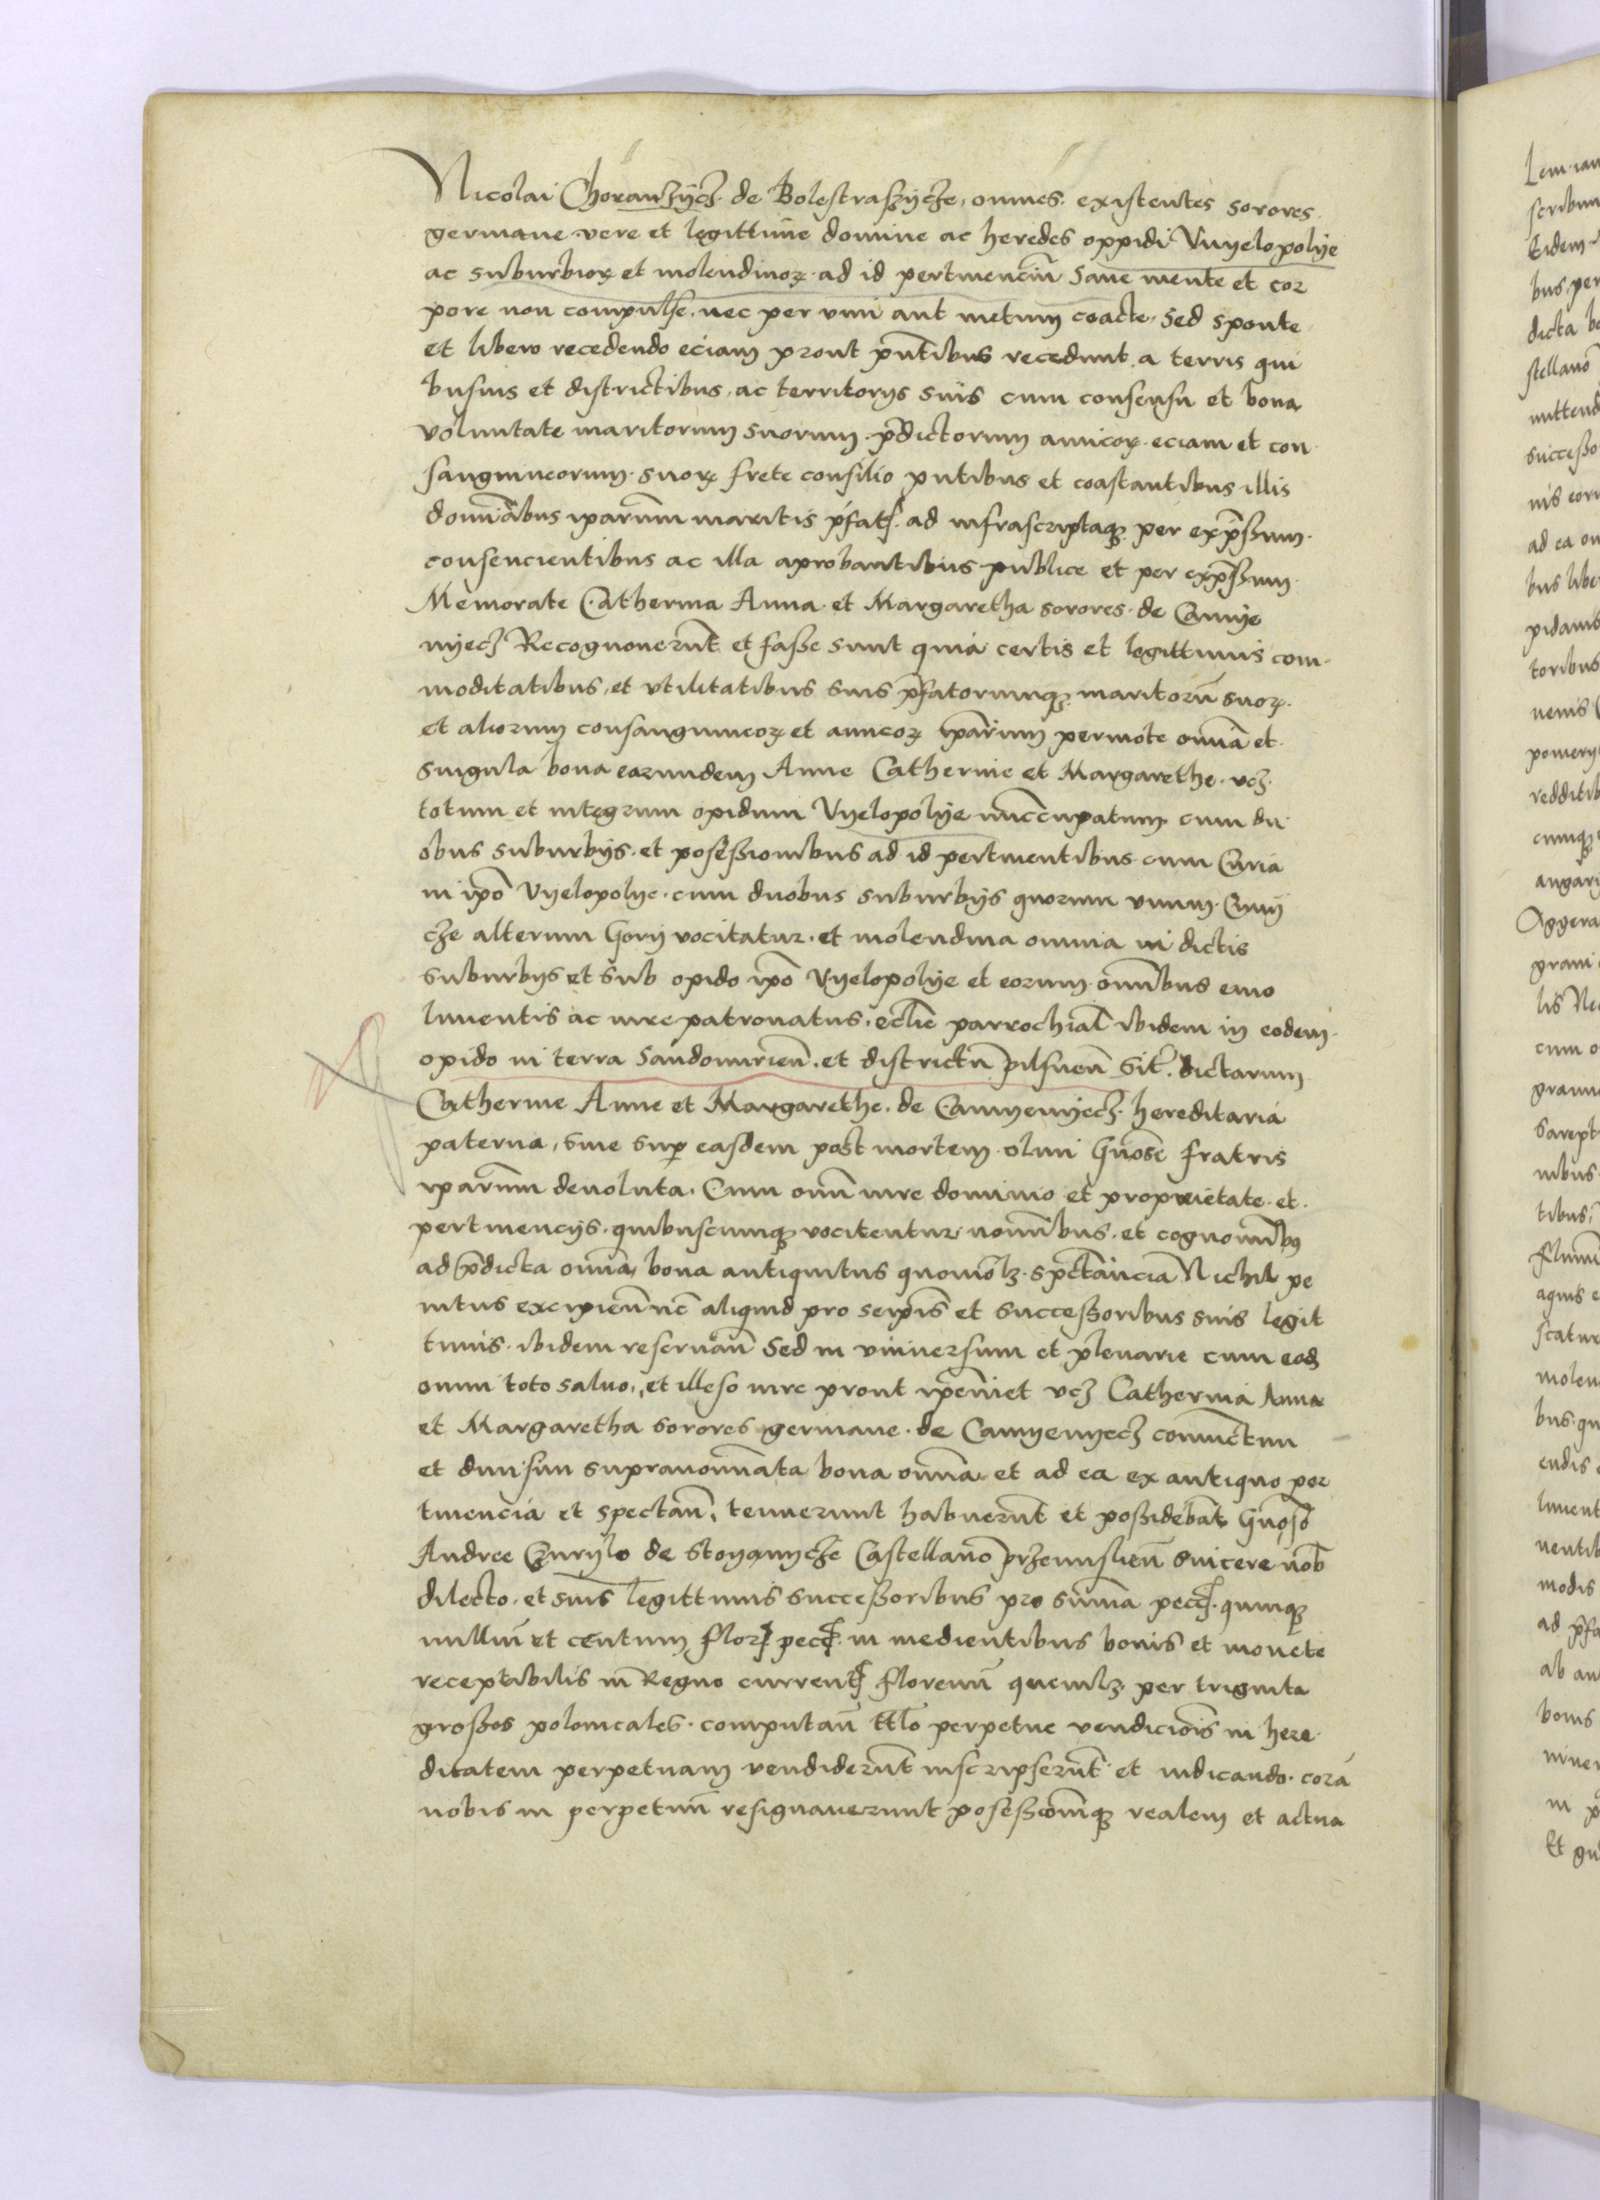 Nicolai Choranżycz de Bolestraszycze, omnes existentes sorores
germane vere et legittime domine ac heredes oppidi Vuyelopolye
ac suburbioꝝ et molendinoꝝ ad id pertinenciū Sane mente et cor
pore non compulse, nec per vim aut metum coacte, Sed sponte
et libero recedendo eciam prout pn̄tibus recedunt a terris qui
busuis et districtibus, ac territorys suis cum consensu et bona
voluntate maritorum suorum p̄dictorum amicoꝝ eciam et con
sanguineorum suoꝝ frete consilio pntibus et coastantibus illis
domīabus iparūm maritis p̄fatꝭ ad infrascriptaqꝫ per exp̄ssum
consencientibus ac illa aprobantibus publice et per exp̄ssum
Memorate Catherina Anna et Margaretha sorores de Camye
nyecz Recognouerūt et fasse sunt quia certis et legittimis com
moditatibus, et vtilitatibus suis p̄fatorumqꝫ maritorū suoꝝ
et aliorum consanguineoꝝ et amicoꝝ ip̄arum permote om̄ia et
singula bona earundem Anne Catherine et Margarethe vcꝫ
totum et integrum opidum Vyelopolye nūccupatum cum du
obus suburbys et possessionibus ad id pertinentibus cum Curia
in ip̄o Vyelopolye cum duobus suburbys quorum vnum
cze alterum Gory vocitatur et molendina omnia in dictis
suburbys et sub opido ip̄o Vyelopolye et eorum om̄ibus emo
lumentis ac iure patronatus, ecclīe parrochial ibidem in eodem
opido in terra Sandomirieñ et districtū pilsneñ sit dictarum
Catherine Anne et Margarethe de Camyenyecz hereditaria
paterna, siue sup easdem post mortem olim Gn̄ose fratris
iparūm deuoluta, Cum om̄i iure dominio et proprietate et
pertinencys quibuscumqꝫ vocitentur nomībus et cognomībꝰ
ad p̄dicta om̄ia bona antiquitus quomōlꝫ spctanciā Nichil pe
nitus excipieñ nec aliquid pro seip̄is et successoribus suis legit
timis ibidem reseruañ Sed in vniuersum et plenarie cum eoꝫ
omni toto saluo, et illeso iure prout vcꝫ Catherina Anna
et Margaretha sorores germane de Camyenyecz coniunctim
et diuisim supranomīata bona om̄ia et ad ea ex antiquo per
tinencia et spectañ, tenuerunt habuerūt et possidebāt Gn̄oso
Andree Czurylo de Stoyanycze Castellano przemislieñ sincere nob̄
dilecto et suis legittimis successoribus pro summa peccꝭ quinqꝫ
millīū et centum florꝭ peccꝭ in medientibus bonis et monete
receptibilis in Regno currentꝭ florenū quemlꝫ per triginta
grossos polonicales computañ ttl̄o perpetue vendiciōis in here
ditatem perpetuam vendiderūt inscripserūt et indicando corā
nobis in perpetuū resignauerunt possessiōmqꝫ realem et actua